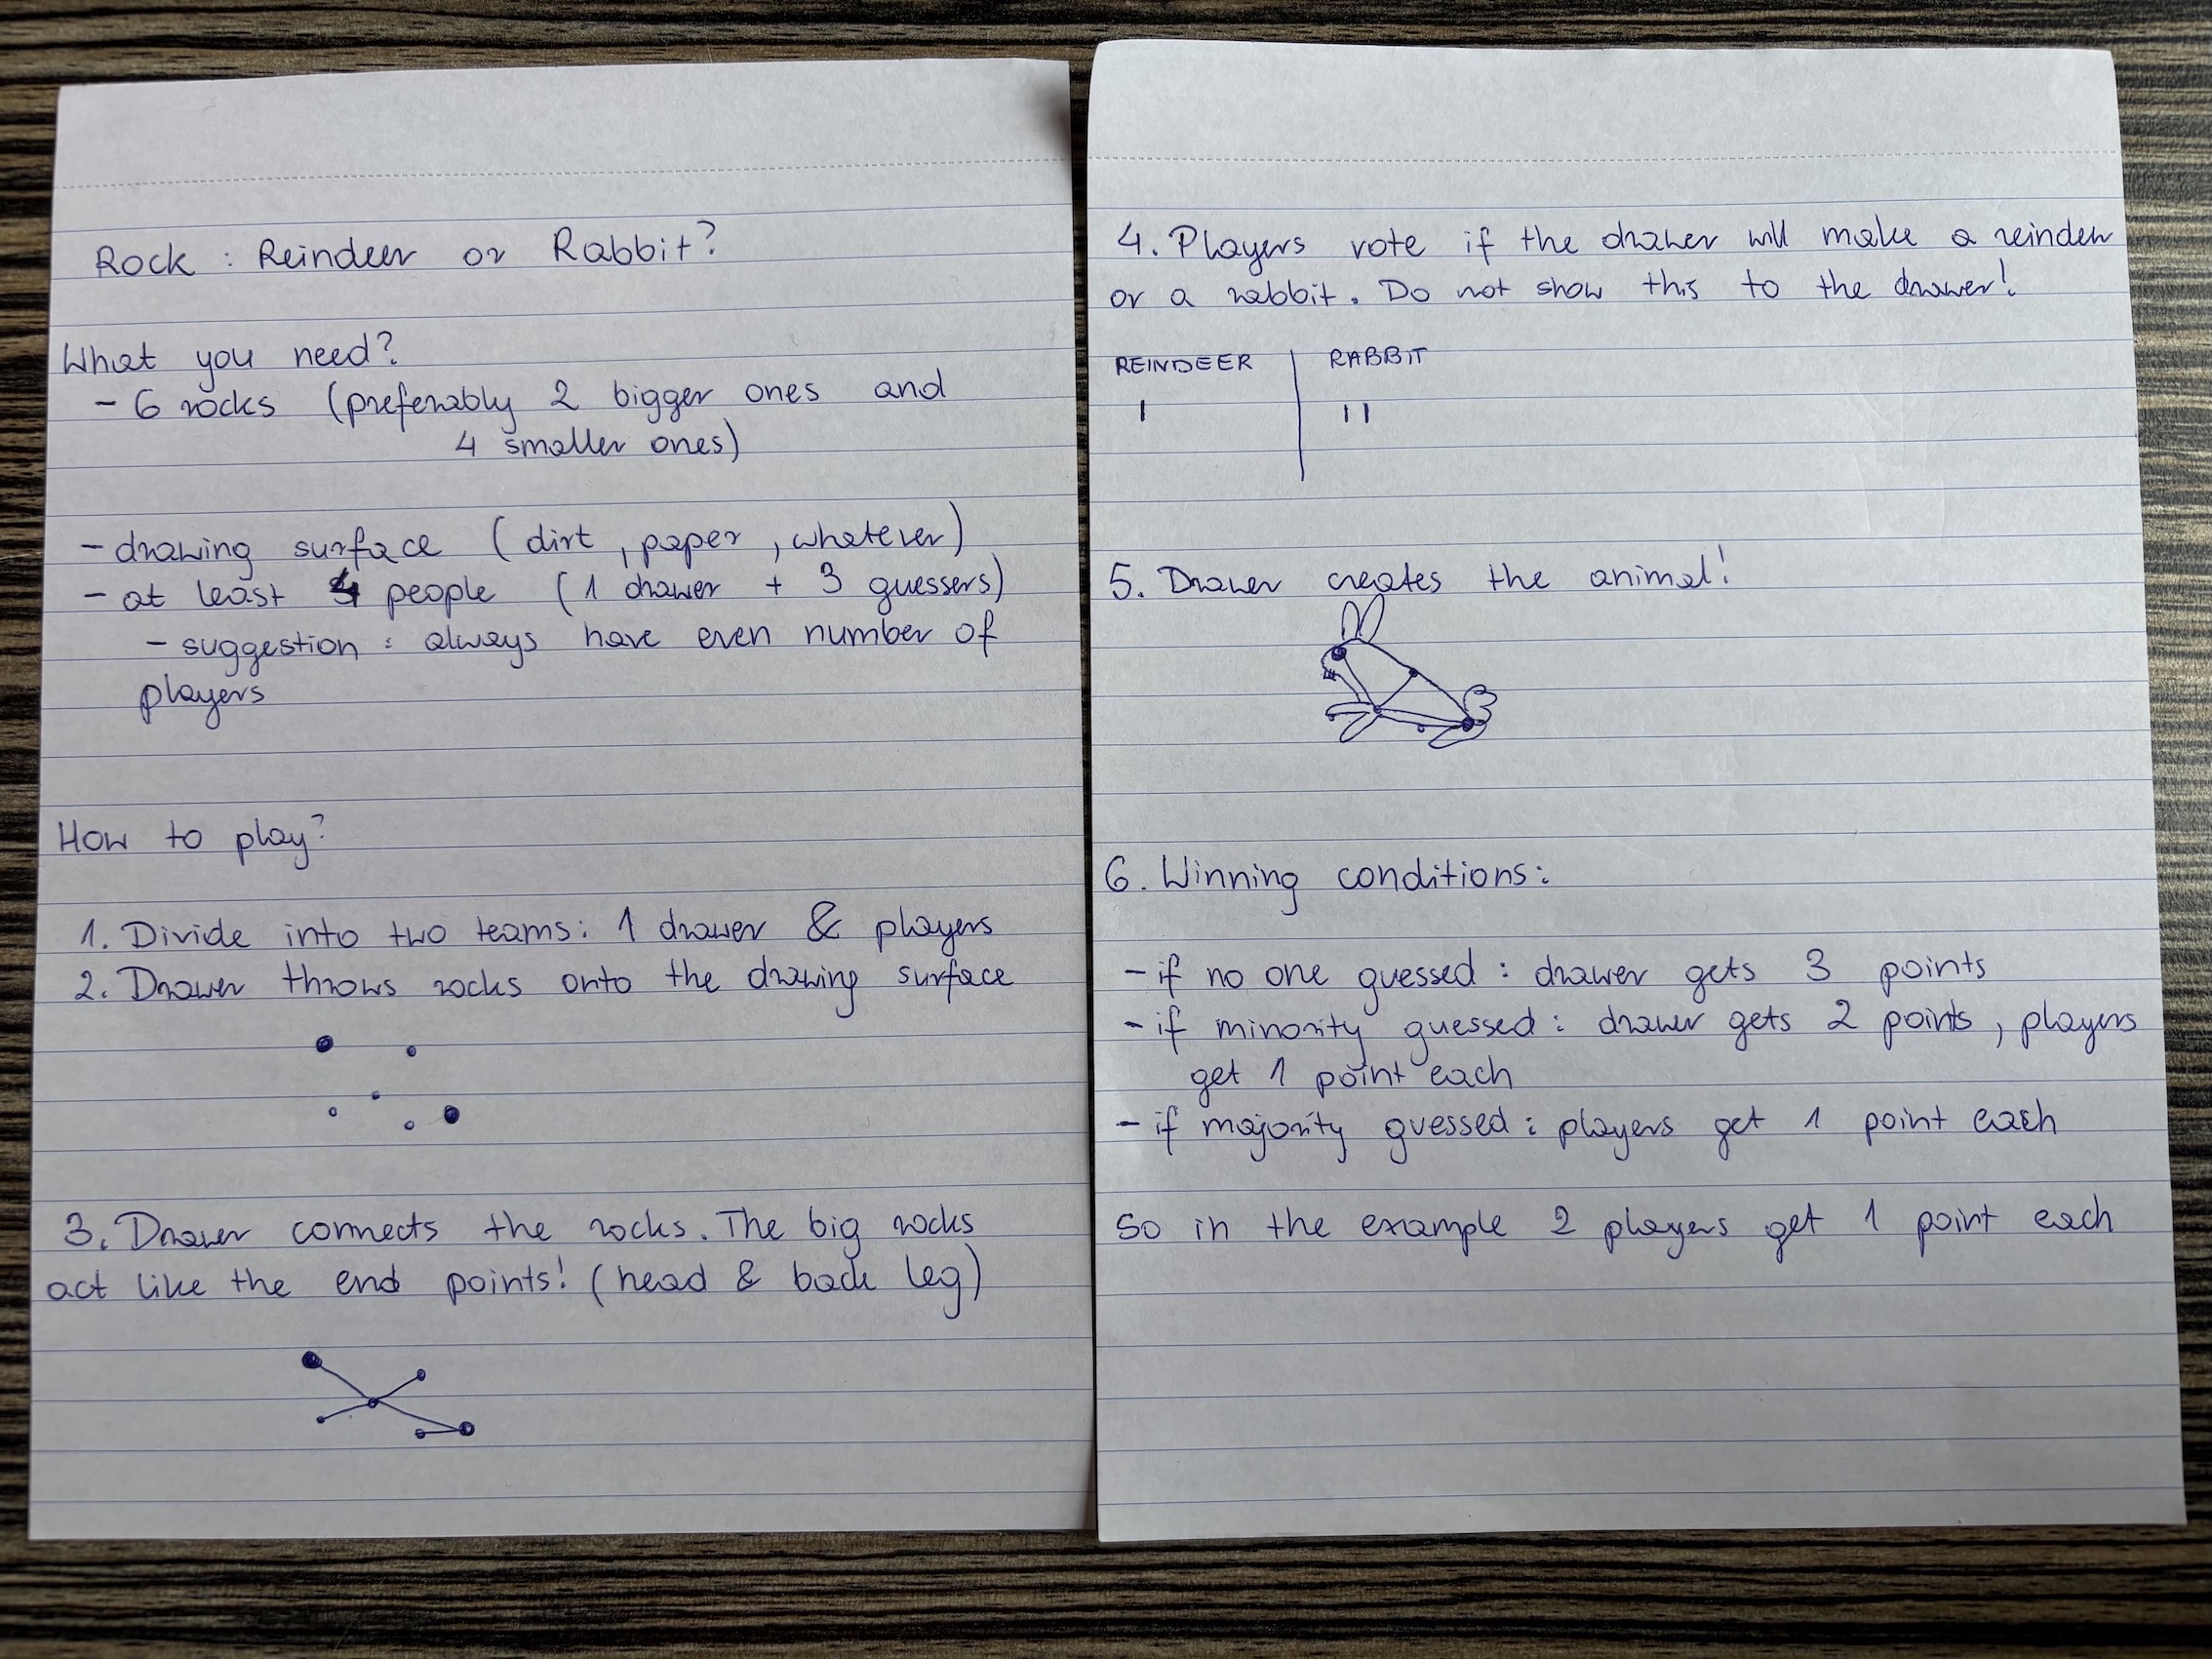 Rock : Reindeer or Rabbit?
What you need?
- 6 rocks (preferably 2 bigger ones and
4 smaller ones)
- drawing surface (dirt, paper, whatever)
- at least 4 people (1 drawer + 3 guessers)
- suggestion : always have even number of
players
How to play?
1. Divide into two teams: 1 drawer & players
2. Drawer throws rocks onto the drawing surface
3. Drawer connects the rocks. The big rocks
act like the end points! (head & back leg)
4. Players vote if the drawer will make a reindeer
or a rabbit. Do not show this to the drawer!
REINDEER | RABBIT
I | II
5. Drawer creates the animal!
6. Winning conditions:
- if no one guessed : drawer gets 3 points
- if minority guessed : drawer gets 2 points, players
get 1 point each
- if majority guessed : players get 1 point each
So in the example 2 players get 1 point each